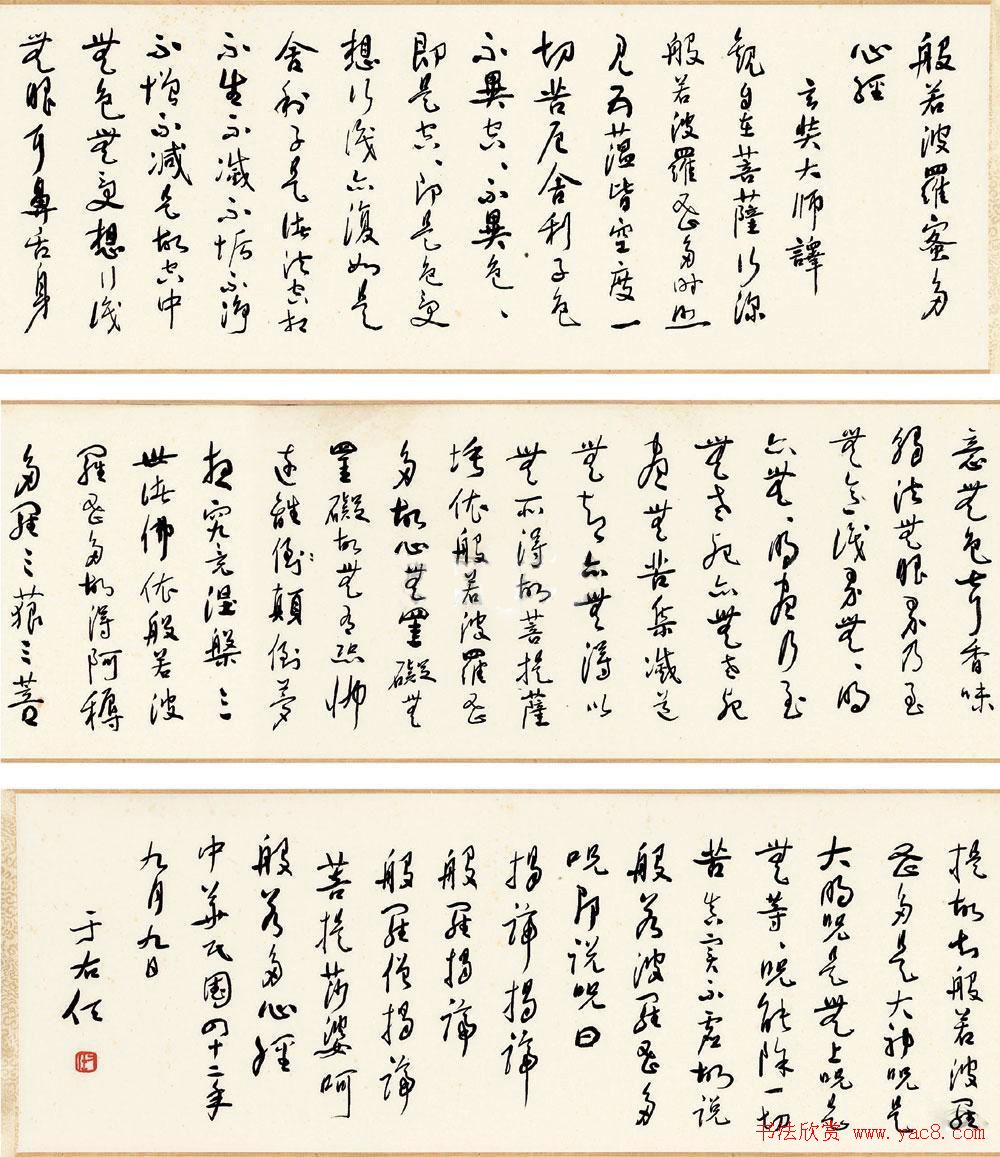 般若波羅蜜多
心經
玄奘大師譯
觀自在菩薩行深
般若波羅蜜多時照
見五蘊皆空度一
切苦厄舍利子色
不異空、不異色、
即是空、即是色受
想行識亦復如是
舍利子是諸法空相
不生不滅不垢不淨
不增不減是故空中
無色無受想行識
無眼耳鼻舌身
意無色聲香味
觸法無眼界乃至
無意識界無、明
亦無、明盡乃至
無老死亦無老死
盡無苦集滅道
無智亦無得以
無所得故菩提薩
埵依般若波羅蜜
多故心無罣礙無
罣礙故無有恐怖
遠離倒顛倒夢
想究竟涅槃三
世諸佛依般若波
羅蜜多故得阿耨
多羅三藐三菩
提故知般若波羅
蜜多是大神呪是
大明呪是無上呪是
無等、呪能除一切
苦真實不虛故說
般若波羅蜜多
呪即說呪曰
揭諦揭諦
般羅揭諦
般羅僧揭諦
菩提莎婆呵
般若多心經
中華民國四十二年
九月九日
于右任
书法欣赏 www.yac8.com